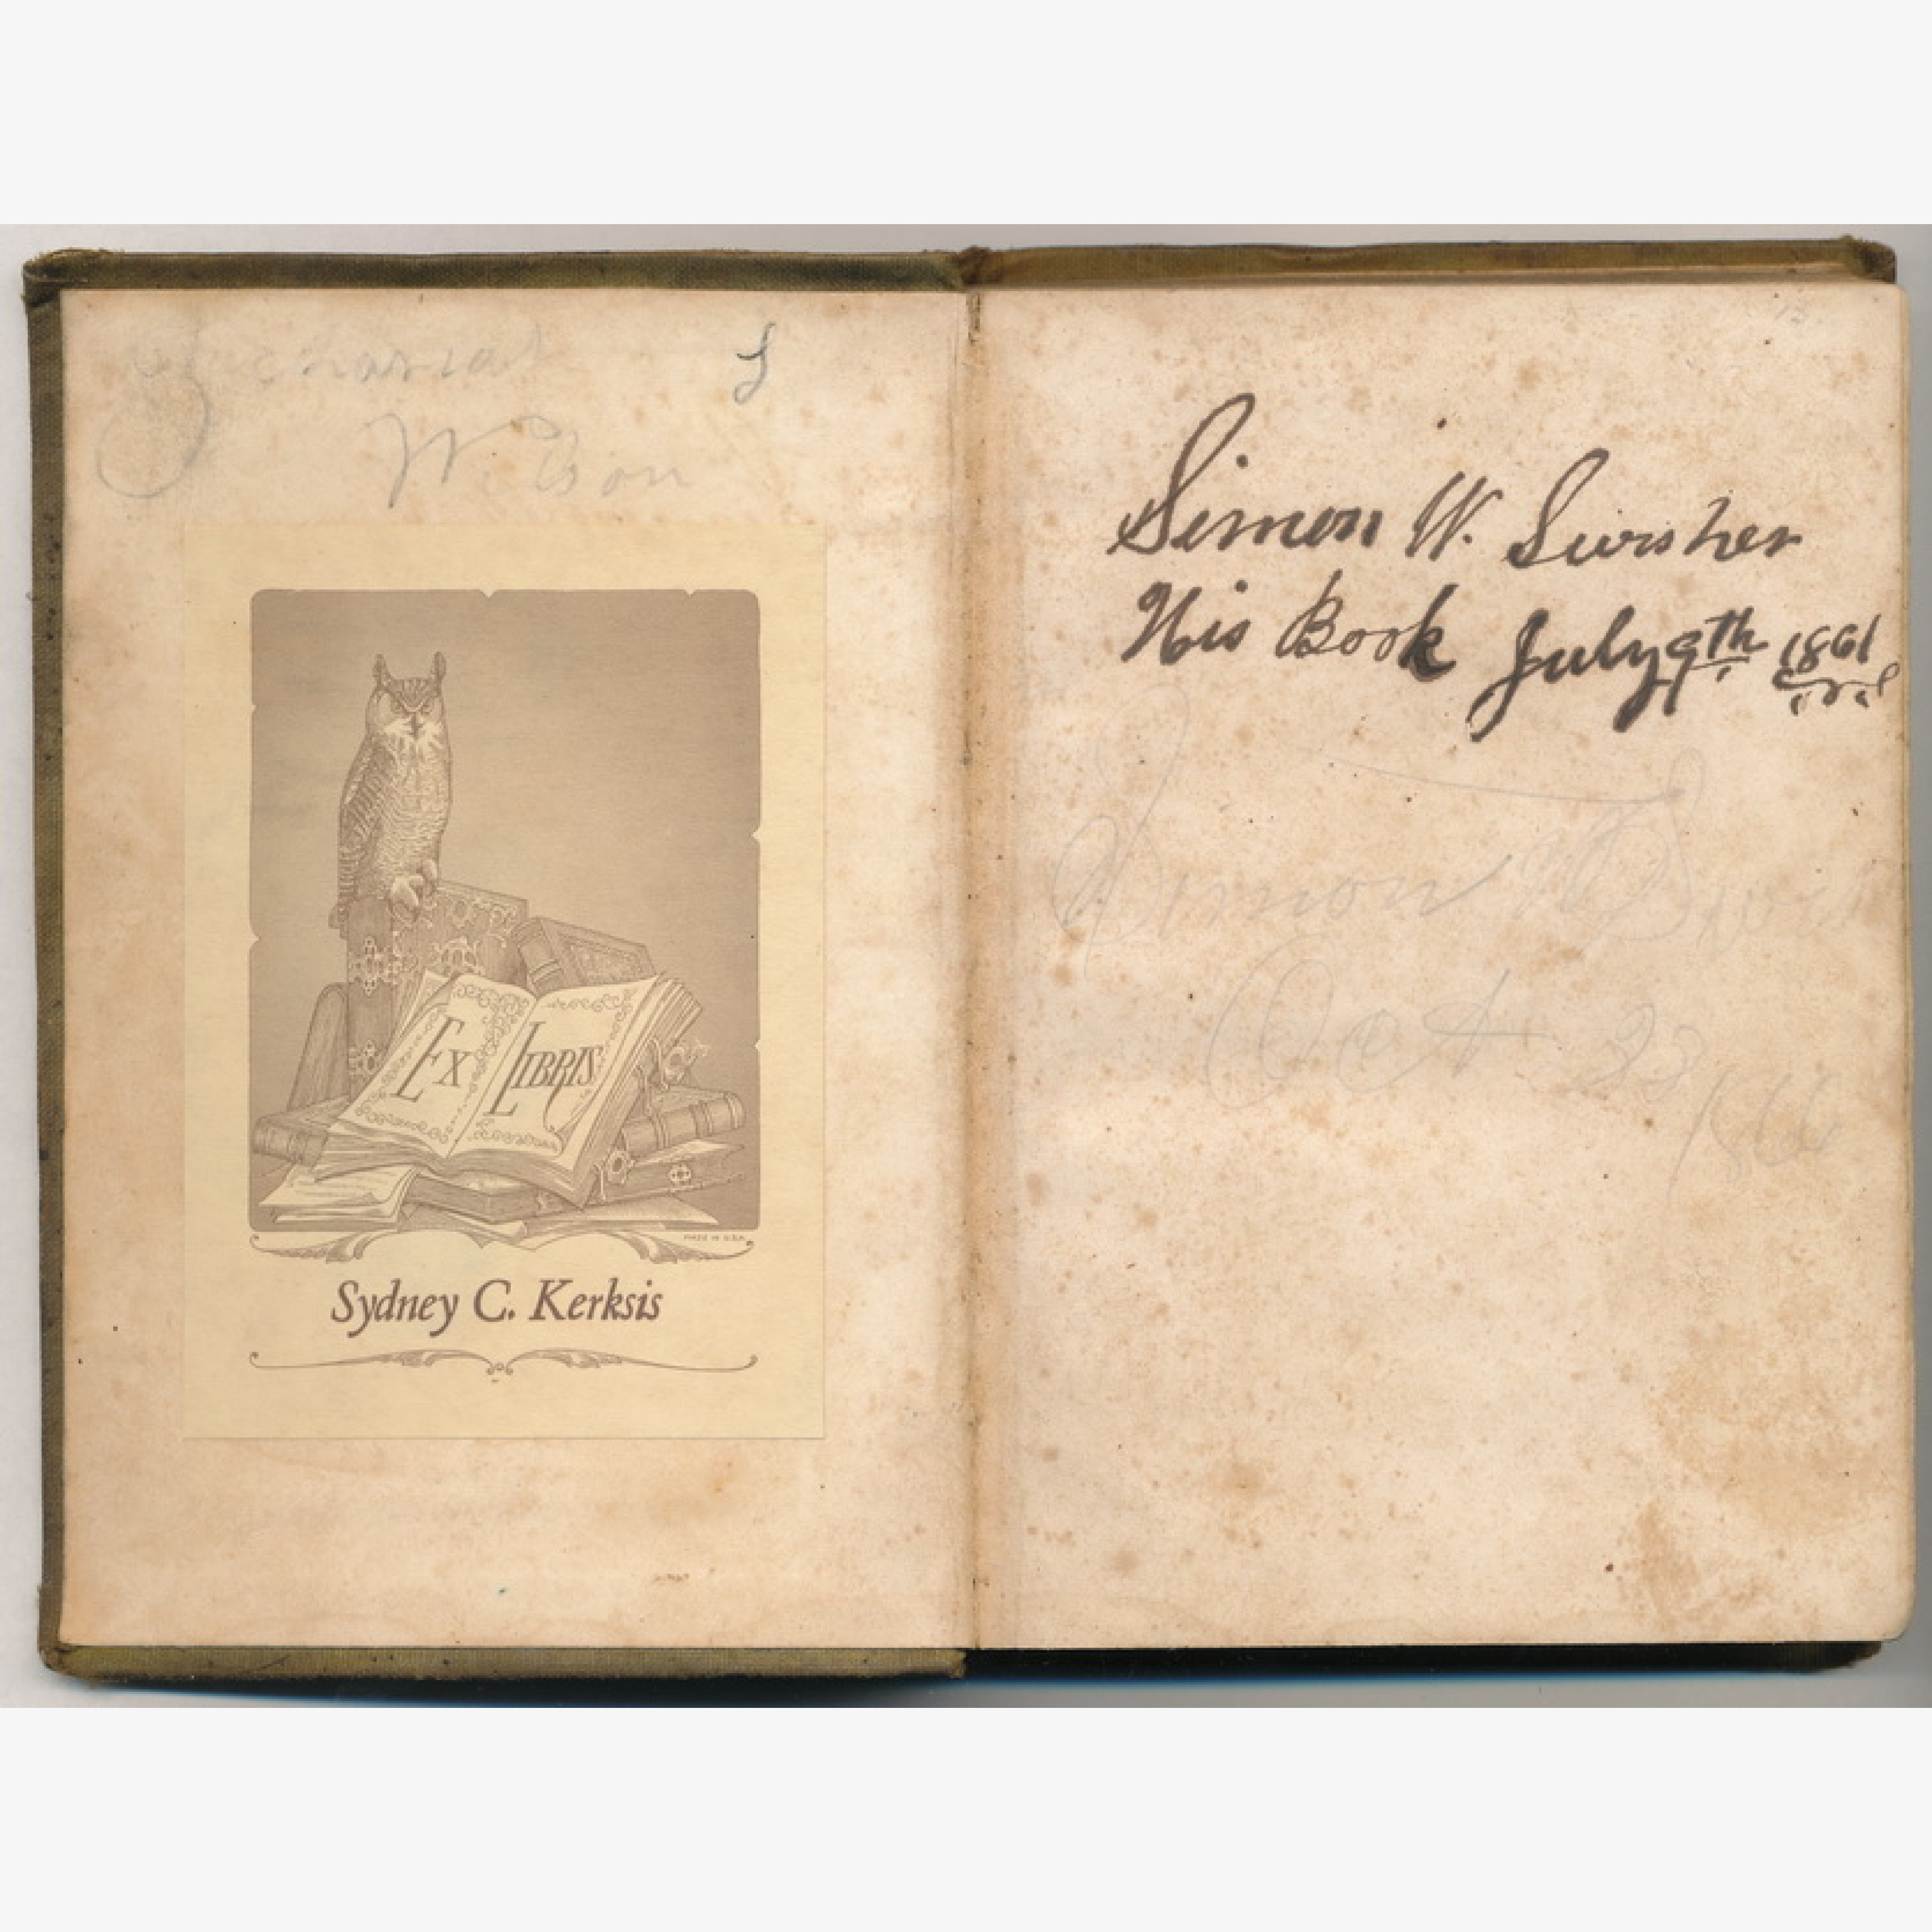 Zachariah
Wilson
Ex Libris
MADE IN U.S.A.
Sydney C. Kerksis
Simon W. Swisher
His Book July 9th 1861
Simon W Swis
Oct 23